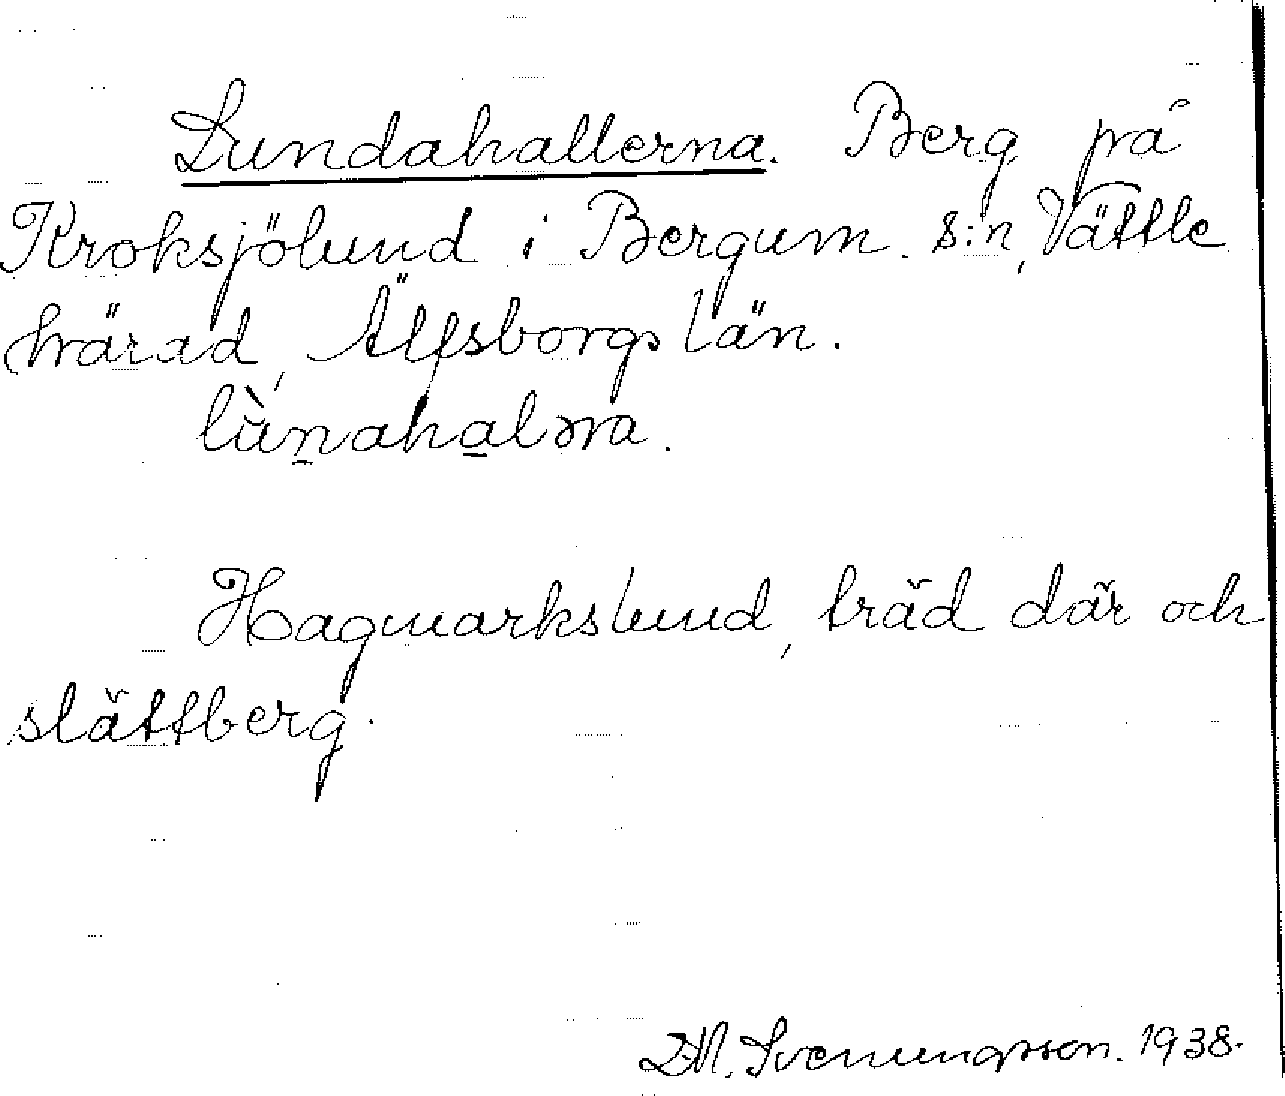 Lundahallerna. Berg på
Kroksjölund i Bergum s:n, Vättle
härad, Älfsborgs län.
lùnahaləra.
Hagmarkslund, träd där och
slättberg.
D.M. Svenungsson. 1938.